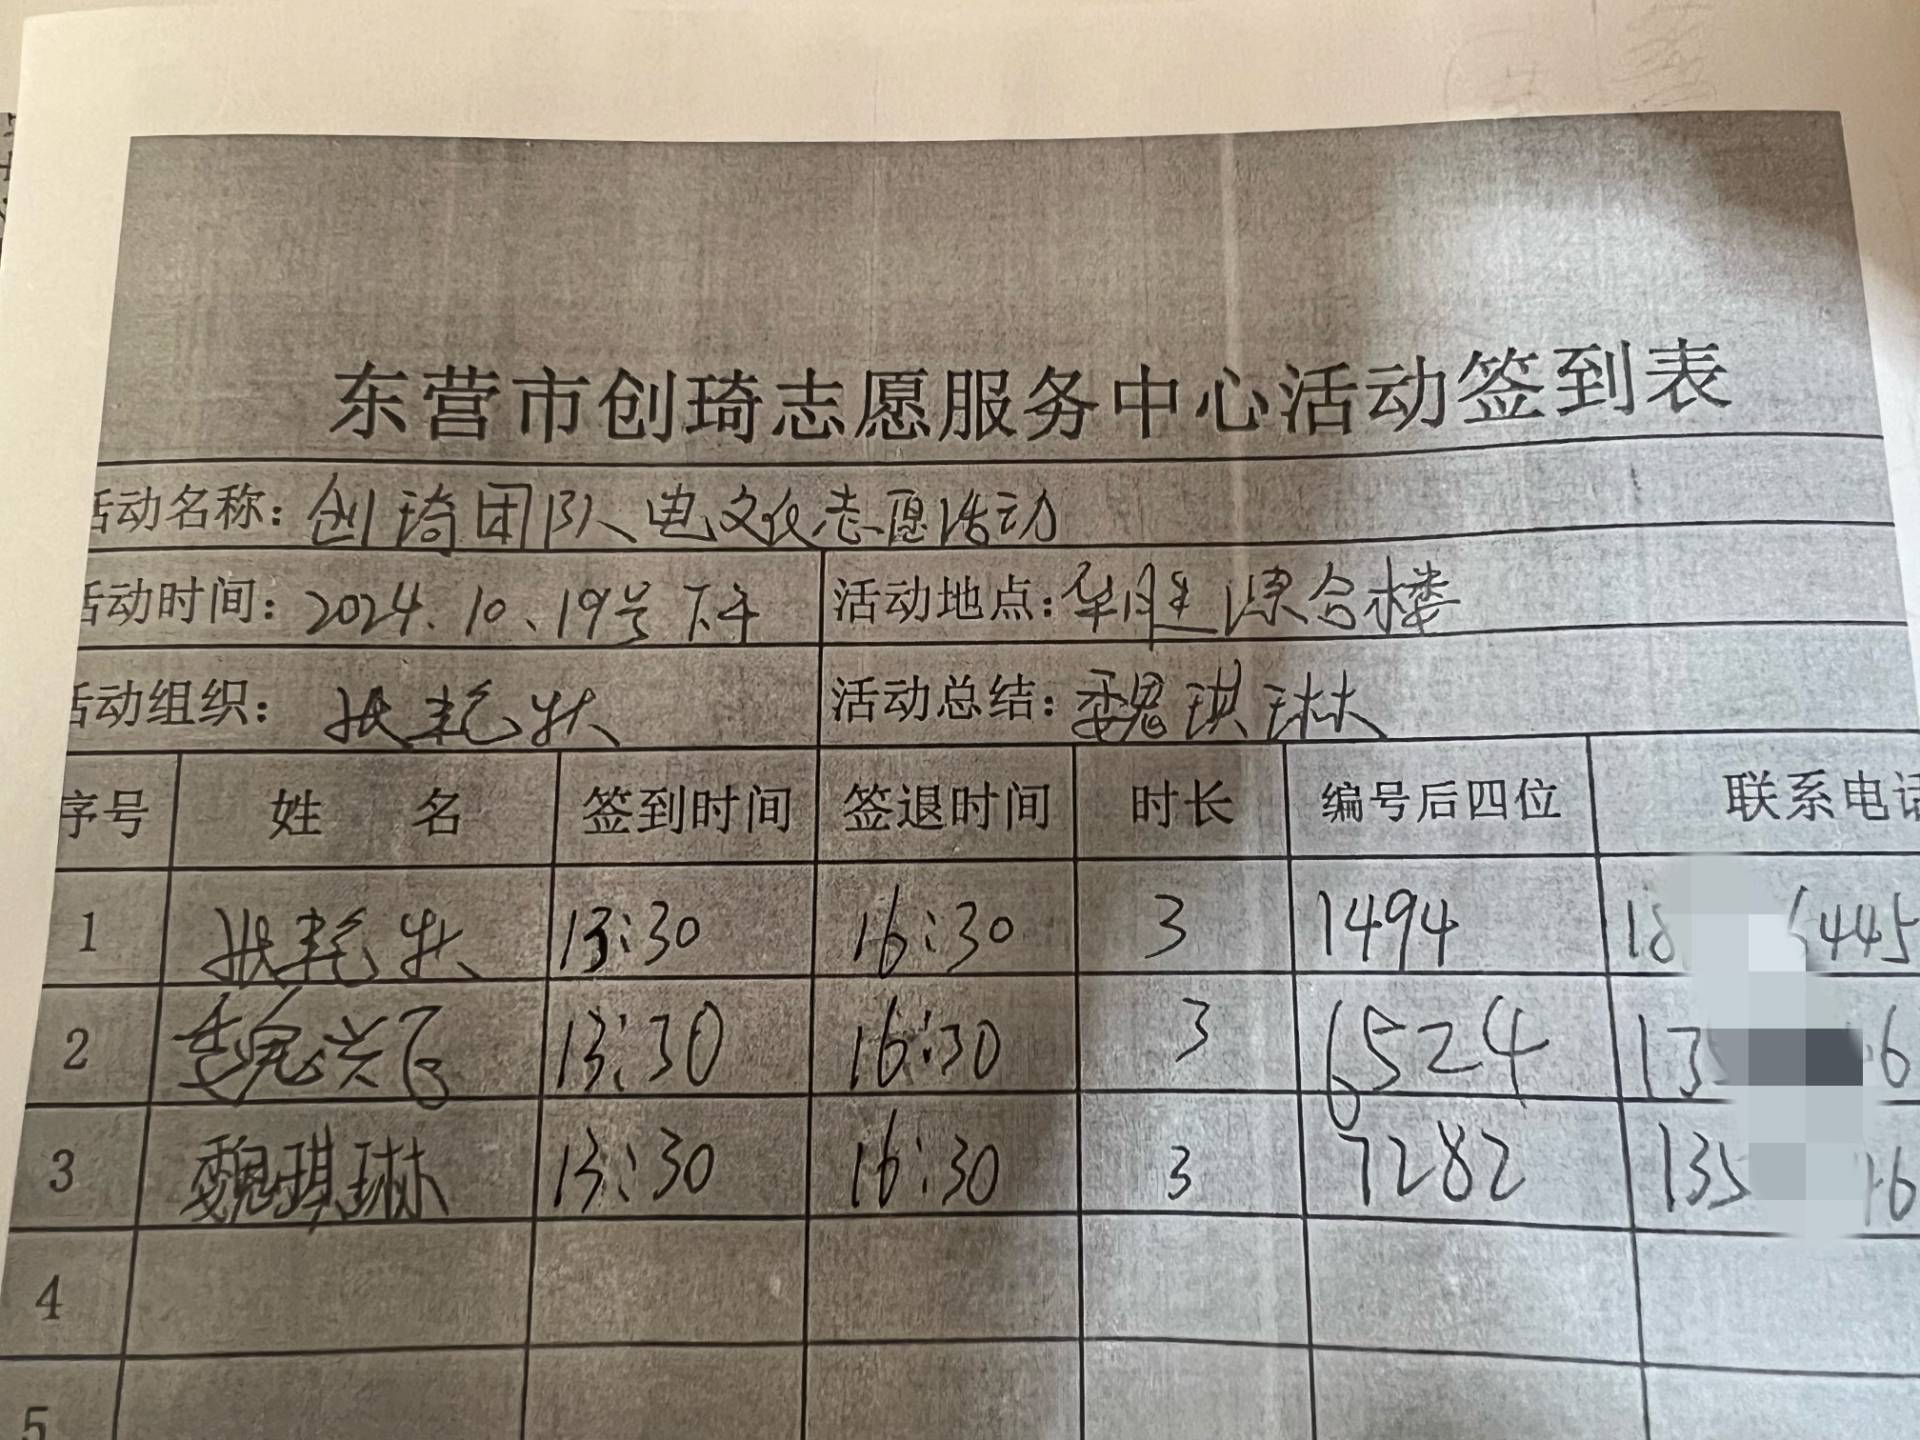 东营市创琦志愿服务中心活动签到表
活动名称：创琦团队电文化志愿活动
活动时间：2024.10.19号下午 活动地点：华胜综合楼
活动组织： 活动总结：魏琪琳
序号 姓 名 签到时间 签退时间 时长 编号后四位 联系电话
1 13:30 16:30 3 1494 18 6445
2 魏兴飞 13:30 16:30 3 6524 135 6
3 魏琪琳 13:30 16:30 3 7282 135 16
4
5